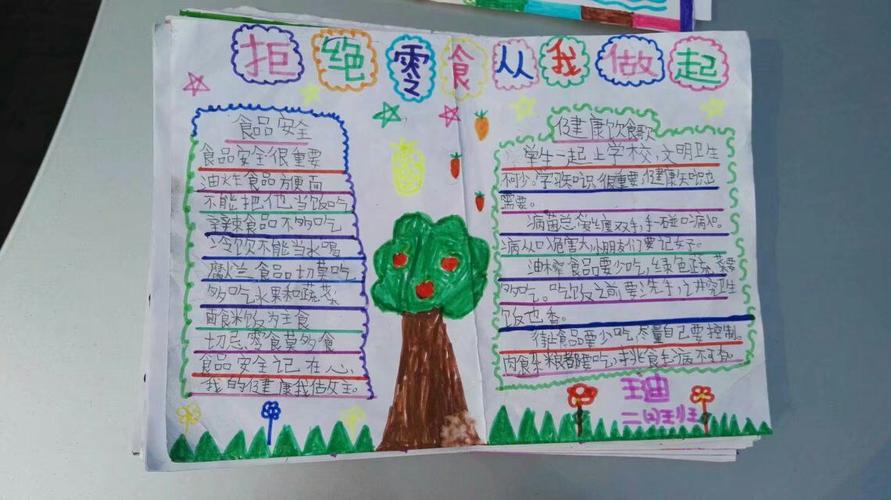 拒绝零食从我做起
食品安全
食品安全很重要
油炸食品方便面
不能把他当饭吃
辛辣食品不多吃
冷饮不能当水喝
腐烂食品切莫吃
多吃水果和蔬菜
米饭为主食
切忌零食莫多食
食品安全记在心
我的健康我做主。
健康饮食歌
学生一起上学校,文明卫生
不可少。学习知识很重要,健康知识也
需要。
病菌总爱缠双手,手碰口病
病从口 危害大,小朋友们要记好。
油炸食品要少吃,绿色蔬菜要
多吃。吃饭之前要洗手,讲究卫生
饭也香。
食品要少吃,尽量自己要控制。
肉食杂粮都要吃,挑食毛病不可有。
王迪
二(1)班